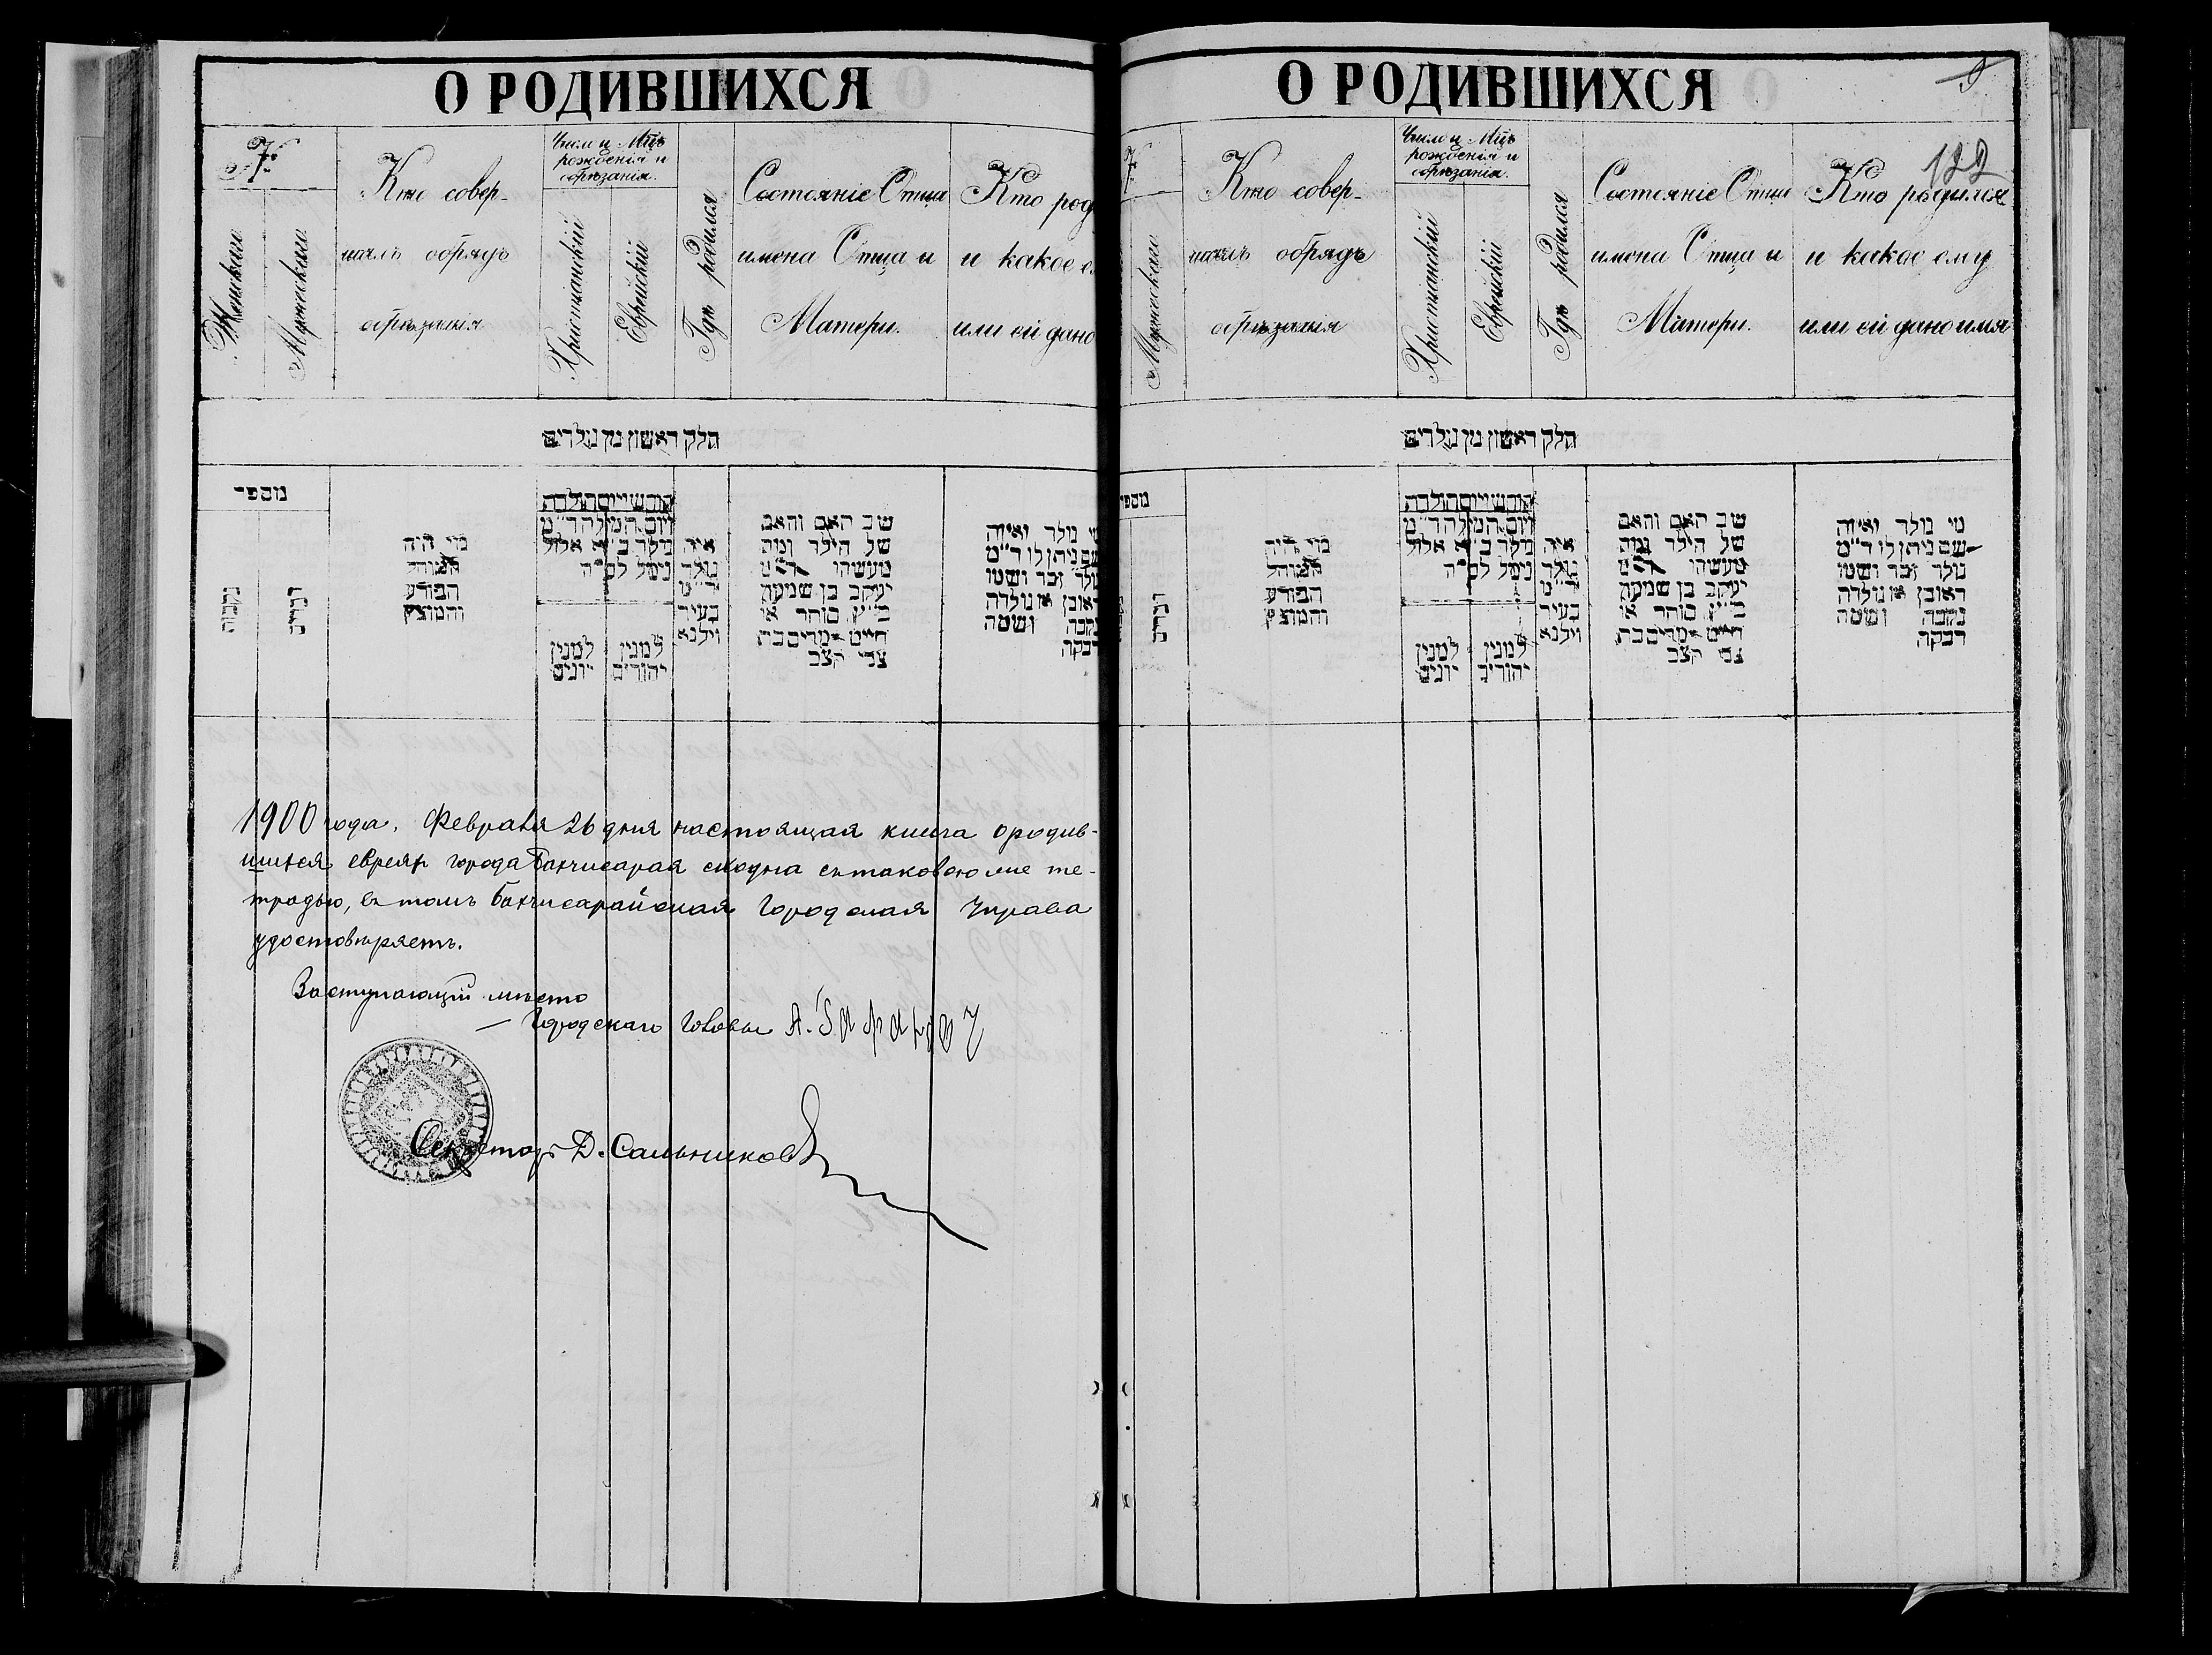 О РОДИВШИХСЯ
№
Женскаго
Мужескаго
Кто совер-
шалъ обрядъ
обрѣзанія
Число и Мцъ
рожденія и
обрѣзанія.
Христіанскій
Еврейскій
Гдѣ родился
Состояніе Отца
имена Отца и
Матери.
Кто род
и какое е
или ей дано
חלק ראשון מן נולדים
מספר
נקבות
זכרים
מי היה
המוהל
הפורע
והמוצץ
חודש ויום הולדת
ויום המילה ד״מ
נולד ב״א אלול
נימל לס״ה
למנין
יונים
למנין
יהודים
איה
נולד
ד״מ
בעיר
וילנא
שב האם והאב
של הילד ומה
מעשיהו ד״מ
יעקב בן שמעון
כ״ץ סוחר או
חייט מרים בת
צבי קצב
מי נולד ואיזה
שם ניתן לו ד״מ
נולד זכר ושמו
ראובן או נולדה
נקבה ושמה
רבקה
1900 года. Февраля 26 дня настоящая книга о родив-
шихся евреяхъ города Бахчисарая сходна съ таковою же те-
традью, въ томъ Бахчисарайская Городская Управа
удостовѣряетъ.
Заступающій мѣсто
Городскаго Головы А.
Секретарь Д. Сальниковъ
О РОДИВШИХСЯ
9
122
№
Мужескаго
Кто совер-
шалъ обрядъ
обрѣзанія
Число и Мцъ
рожденія и
обрѣзанія.
Христіанскій
Еврейскій
Гдѣ родился
Состояніе Отца
имена Отца и
Матери.
Кто родился
и какое ему
или ей дано имя
חלק ראשון מן נולדים
מספר
זכרים
מי היה
המוהל
הפורע
והמוצץ
חודש ויום הולדת
ויום המילה ד״מ
נולד ב״א אלול
נימל לס״ה
למנין
יונים
למנין
יהודים
איה
נולד
ד״מ
בעיר
וילנא
שב האם והאב
של הילד ומה
מעשיהו ד״מ
יעקב בן שמעון
כ״ץ סוחר או
חייט מרים בת
צבי קצב
מי נולד ואיזה
שם ניתן לו ד״מ
נולד זכר ושמו
ראובן או נולדה
נקבה ושמה
רבקה